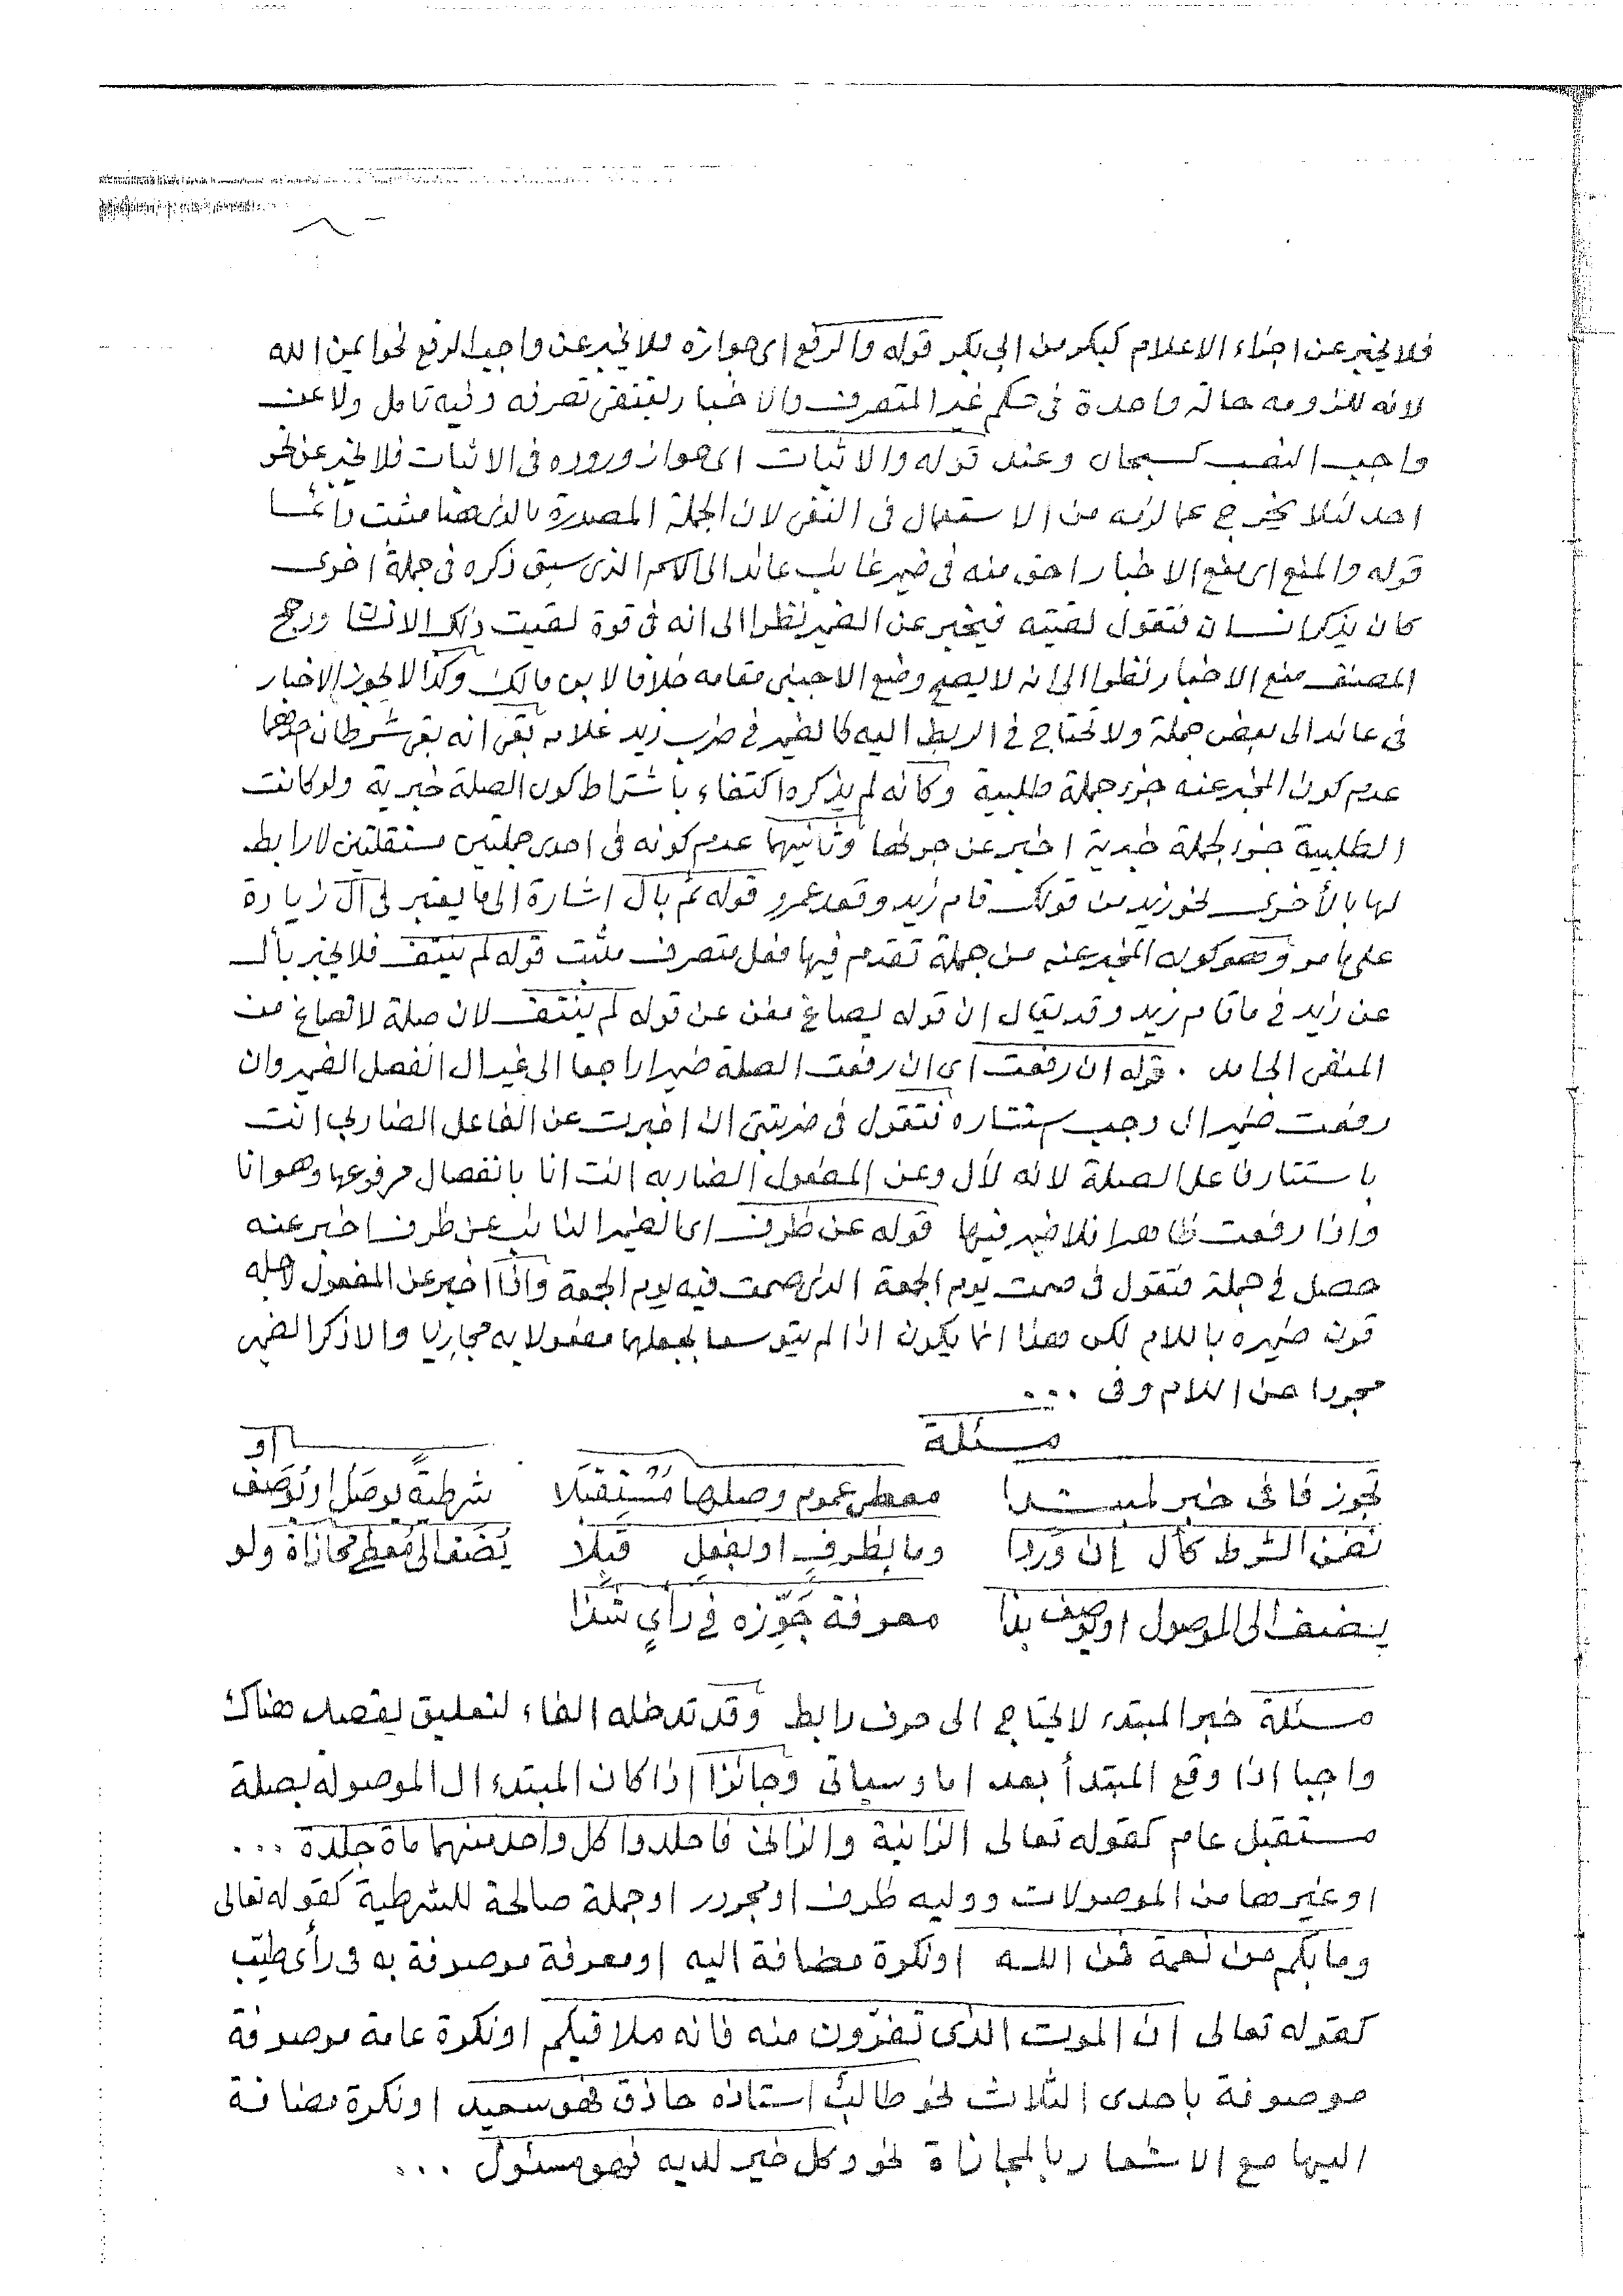 فلا يخبر عن اجزاء الاعلام كبكر من ابى بكر قوله والرفع اى جوازه فلا يخبر عن واجب الرفع نحو ايمن الله
لانه للزومه حالة واحدة فى حكم غير المتصرف والاخبار يقتضى تصرفه وفيه تامل ولا عن
واجب النصب كسبحان وعند قوله والاثبات اى جواز وروده فى الاثبات فلا يخبر عن نحو
احد لئلا يخرج عما لزمه من الاستعمال فى النفى لان الجملة المصدرة بالذى هنا مثبت دائما
قوله والمنع اى منع الاخبار احق منه فى ضمير غائب عائد الى الاسم الذى سبق ذكره فى جملة اخرى
كان يذكر انسان فتقول لقيته فيخبر عن الضمير نظرا الى انه فى قوة لقيت ذلك الانسان ورجح
المصنف منع الاخبار نظرا الى انه لا يصح وضع الاجنبى مقامه خلافا لابن مالك وكذا لا يجوز الاخبار
فى عائد الى بعض جملة ولا تحتاج فى الربط اليه كالضمير فى ضرب زيد غلامه بقى انه بقى شرطان احدهما
عدم كون المخبر عنه جزء جملة طلبية وكانه لم يذكره اكتفاء باشتراط كون الصلة خبرية ولو كانت
الطلبية جزء الجملة خبرية اخبر عن جزئها وثانيهما عدم كونه فى احدى جملتين مستقلتين لا رابط
لها بالأخرى نحو زيد من قولك قام زيد وقعد عمرو قوله ثم بال اشارة الى ما يعتبر فى آل زيادة
على ما مر وهو كون المخبر عنه من جملة تقدم فيها فعل متصرف مثبت قوله لم ينتف فلا يخبر بأل
عن زيد فى ما قام زيد وقد يقال ان قوله يصاغ مغن عن قوله لم ينتف لان صلة لا تصاغ من
المنفى الجامد . قوله ان رفعت اى ان رفعت الصلة ضميرا راجعا الى غير ال انفصل الضمير وان
رفعت ضمير ال وجب ستتاره فتقول فى ضربتنى ان اخبرت عن الفاعل الضاربى انت
باستتار فاعل الصلة لانه لأل وعن المفعول الضاربه انت انا بانفصال مرفوعها وهو انا
واذا رفعت ظاهرا فلا ضمير فيها قوله عن ظرف اى الضمير النائب عن ظرف اخبر عنه
حصل فى جملة فتقول فى صمت يوم الجمعة الذى صمت فيه يوم الجمعة واذا اخبر عن المفعول لاجله
قرن ضميره باللام لكن هذا انما يكون اذا لم يتوسعا بجعلهما مفعولا به مجازيا والا ذكر الضمير
مجردا عن اللام وفى ...
مسئلة
تجوز فا فى خبر لمبتدا معطى عموم وصلها مستقبلا شرطية يوصل او يوصف او
تضمن الشرط كأل إن وردا وما بظرف او بفعل قبلا يضف الى معطى مجازاة ولو
يضف الى الموصول او يوصف بذا معرفة جوّزه فى رأي شذا
مسئلة خبر المبتدء لا يحتاج الى حرف رابط وقد تدخله الفاء لتعليق يقصد هناك
واجبا اذا وقع المبتدأ بعد اما وسياتى وجائزا اذا كان المبتدء ال الموصولة بصلة
مستقبل عام كقوله تعالى الزانية والزانى فاجلدوا كل واحد منهما ماة جلدة ...
او غيرها من الموصولات ووليه ظرف او مجرور او جملة صالحة للشرطية كقوله تعالى
وما بكم من نعمة فمن الله او نكرة مضافة اليه او معرفة موصوفة به فى رأى طيب
كقوله تعالى ان الموت الذى تفرّون منه فانه ملاقيكم او نكرة عامة موصوفة
موصوفة باحدى الثلاث نحو طالب استاذه حاذق فهو سعيد او نكرة مضافة
اليها مع الاشعار بالمجازاة نحو وكل خير لديه فهو مسئول ...